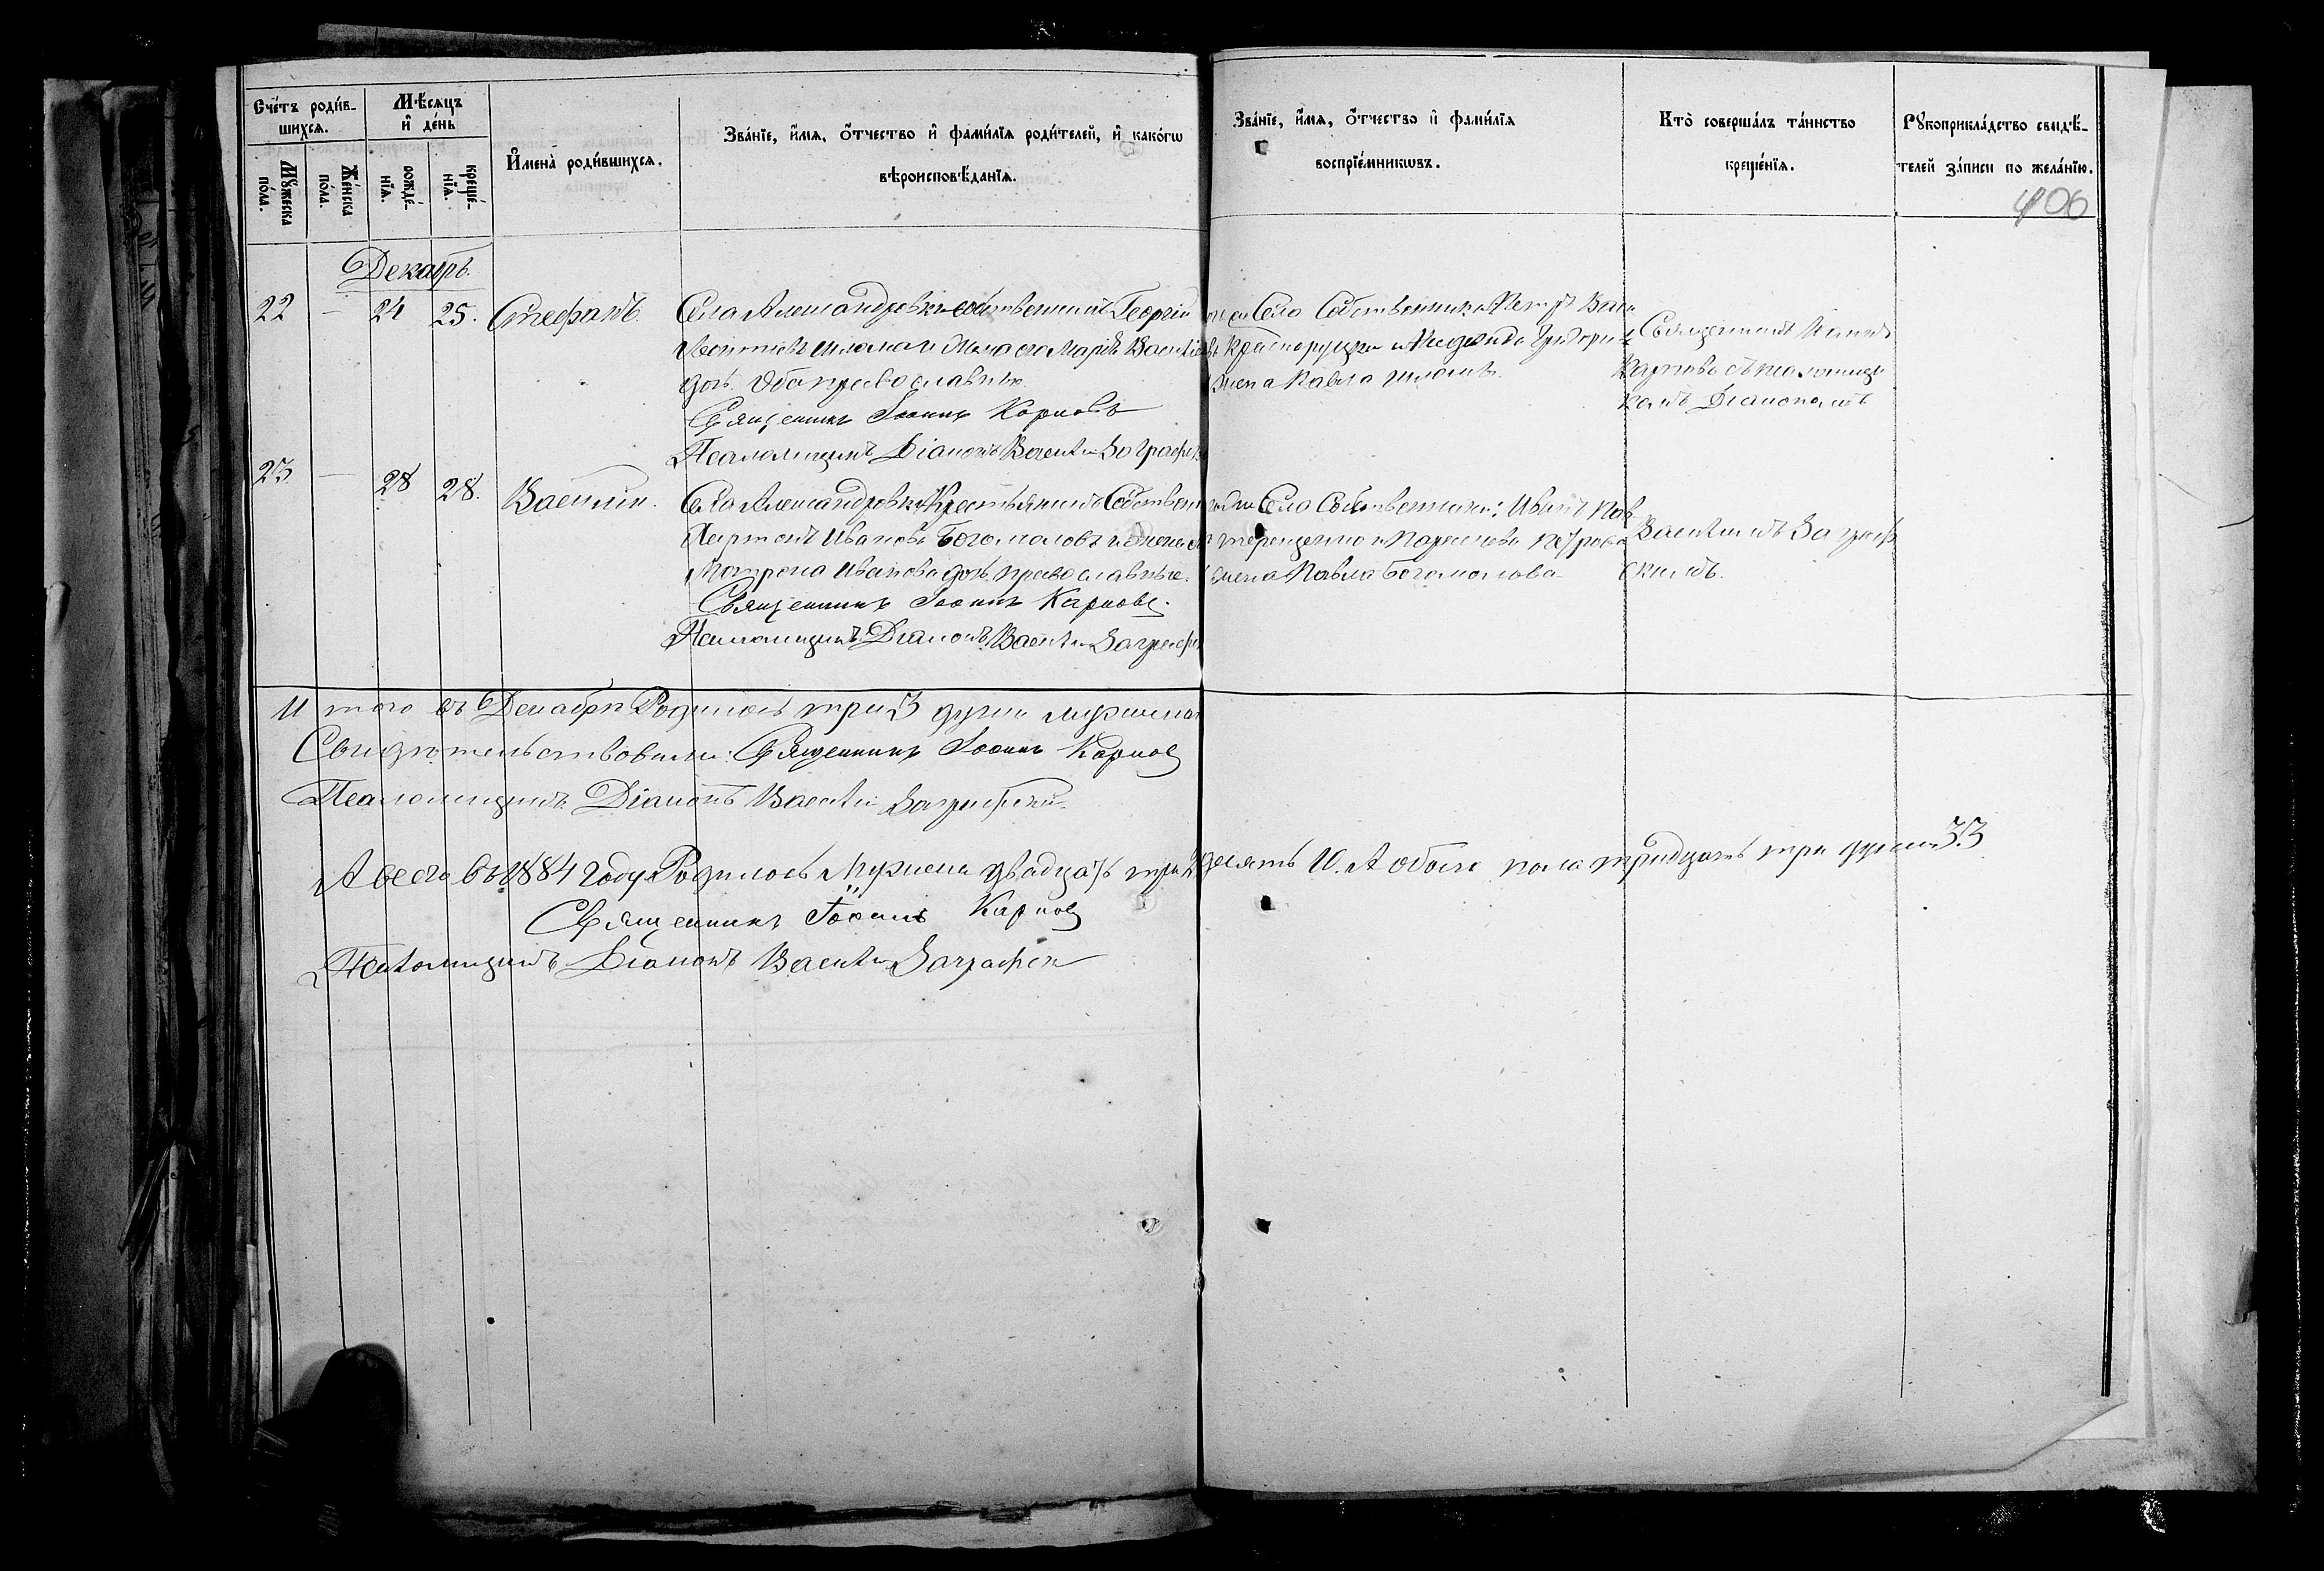 Счетъ родив-
шихся.
Мѣсяцъ
и день
Мꙋжеска
пола.
Женска
пола.
рожде-
нїя.
креще-
нїя.
Имена родившихся.
Званїе, имя, отчество и фамилїя родителей, и какогѡ
вѣроисповѣданїя.
Званїе, имя, отчество и фамилїя
воспрїемникѡвъ.
Кто совершалъ таинство
крещенїя.
Рꙋкоприкладство свидѣ-
телей записи по желанїю.
406
Декабрь.
22 — 24 25. Стефанъ.
Села Александровки собственникъ Георгій
Леонтьевъ и жена его Марія Василіе
дочь. Оба православные
Священникъ Іоаннъ Карповъ
Псаломщикъ Діаконъ Василій Заграфск
Села Собственники Петръ Васи
и Надежда Григорі
жена Павла
Священникъ Іоаннъ
Карповъ съ псаломщи
комъ Діакономъ
23. — 28 28. Василій.
Села Александровки Крестьянинъ Собствен
Харитонъ Ивановъ Богомоловъ и жена
Матрона Иванова дочь, православные.
Священникъ Іоаннъ Карповъ.
Псаломщикъ Діаконъ Василій Заграфск
Села Собственники: Иванъ Пав
Терещенко и Параскева Петрова
жена Павла Богомолова
Василіемъ Заграф
скимъ.
Итого въ Декабрѣ Родилось три 3 души мужеска
Свидѣтельствовали: Священникъ Іоаннъ Карповъ
Псаломщикъ Діаконъ Василій Заграфскій
А всего въ 1884 году Родилось Мужеска двадцать три десять 10. А обоего пола тридцать три души 33
Священникъ Іоаннъ Карповъ
Псаломщикъ Діаконъ Василій Заграфск